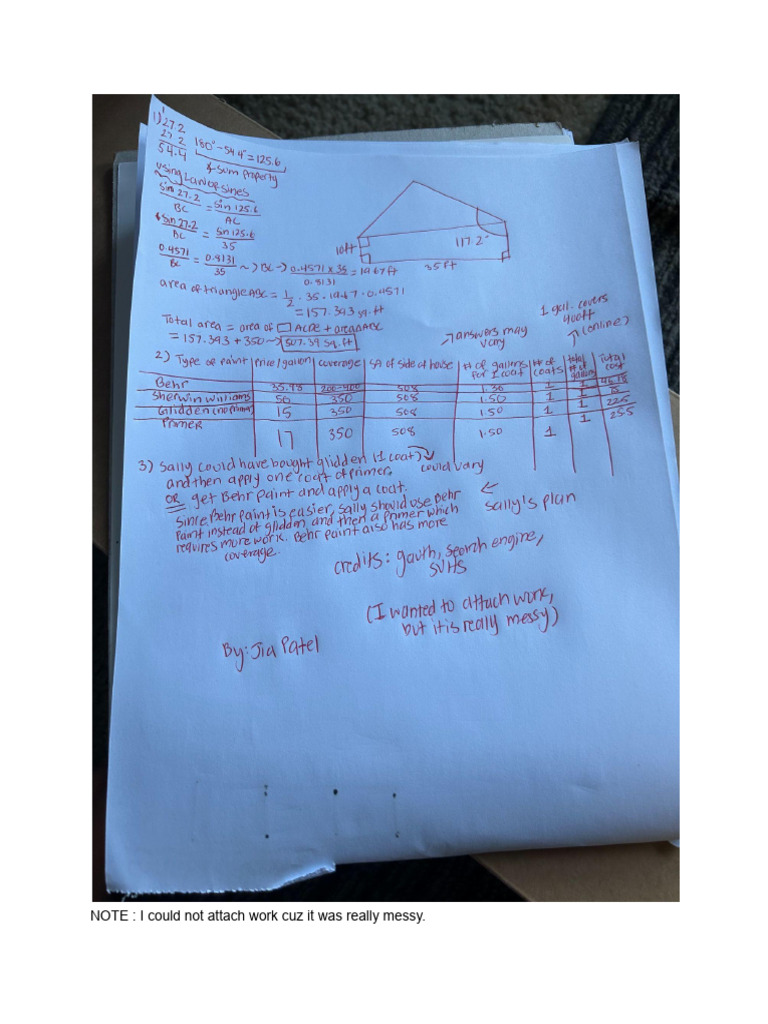 1) 27.2
27.2
54.4
180° - 54.4° = 125.6
Δ Sum Property
using Law of Sines
Sin 27.2 = Sin 125.6
BC AC
Sin 27.2 = Sin 125.6
BC 35
0.4571 = 0.8131 ~> BC -> 0.4571 x 35 = 19.67 ft
BC 35 0.8131
10ft
117.2°
35 ft
area of triangle ABC = 1/2 · 35 · 19.67 · 0.4571
= 157.393 sq. ft
Total area = area of ▭ ACDE + area ΔABC
= 157.393 + 350 ~> 507.39 sq. ft
answers may vary
1 gal. covers 400ft
(online)
2) Type of paint | Price/gallon | coverage | SA of side of house | # of gallons for 1 coat | # of coats | total # of gallons | Total cost
Behr | 35.98 | 200-400 | 508 | 1.30 | 1 | 1
Sherwin Williams | 50 | 350 | 508 | 1.50 | 1 | 1 | 75
Glidden (no primer) | 15 | 350 | 508 | 1.50 | 1 | 1 | 22.5
Primer | 17 | 350 | 508 | 1.50 | 1 | 1 | 25.5
3) Sally could have bought glidden (1 coat)
and then apply one coat of primer.
could vary
OR get Behr paint and apply a coat.
Since Behr Paint is easier, Sally should use Behr
Paint instead of glidden and then a primer which
requires more work. Behr paint also has more
coverage.
Sally's plan
credits: gauth, search engine,
SVHS
(I wanted to attach work,
but it is really messy)
By: Jia Patel
NOTE : I could not attach work cuz it was really messy.